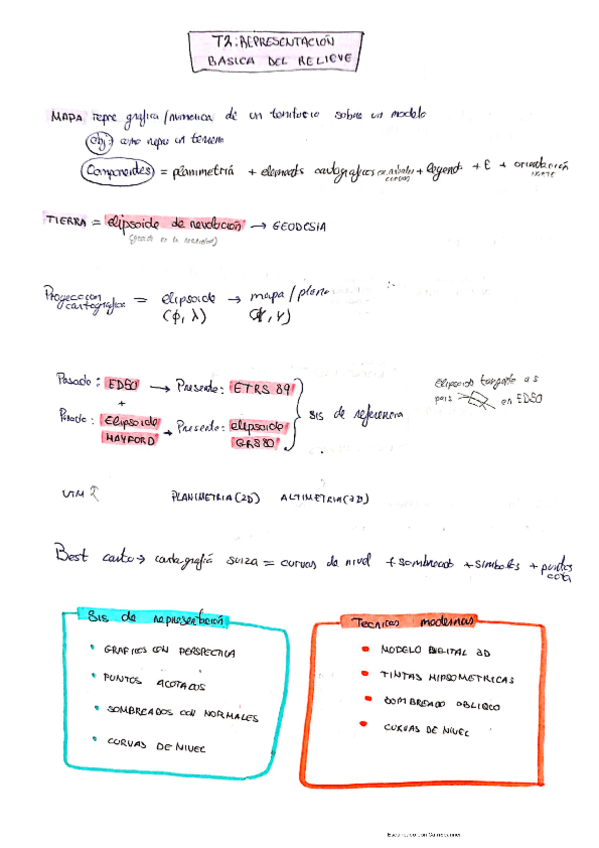 T2: REPRESENTACIÓN
BASICA DEL RELIEVE
MAPA: repre grafica/numerica de un territorio sobre un modelo
obj: como repre un terreno
Componentes = planimetriá + elements cartograficos + leyenda + E + orientación
TIERRA = elipsoide de revolución → GEODESIA
(geoide en la realidad)
Proyeccion cartografica = elipsoide → mapa/plano
(φ, λ)
Pasado: ED50 → Presente: ETRS 89
+
Pasado: Elipsoide HAYFORD → Presente: elipsoide GRS80
sis de referencia
elipsoide tangente a s
pais en ED50
UTM
PLANIMETRIA (2D) ALTIMETRIA (3D)
Best carto → cartografiá suiza = curvas de nivel + sombreado + simboles + puntos cota
Sis de representación
• GRAFICOS CON PERSPECTIVA
• PUNTOS ACOTADOS
• SOMBREADOS CON NORMALES
• CURVAS DE NIVEL
Tecnicas modernas
• MODELO DIGITAL 3D
• TINTAS HIPSOMETRICAS
• SOMBREADO OBLIQUO
• CURVAS DE NIVEL
Escaneado con CamScanner